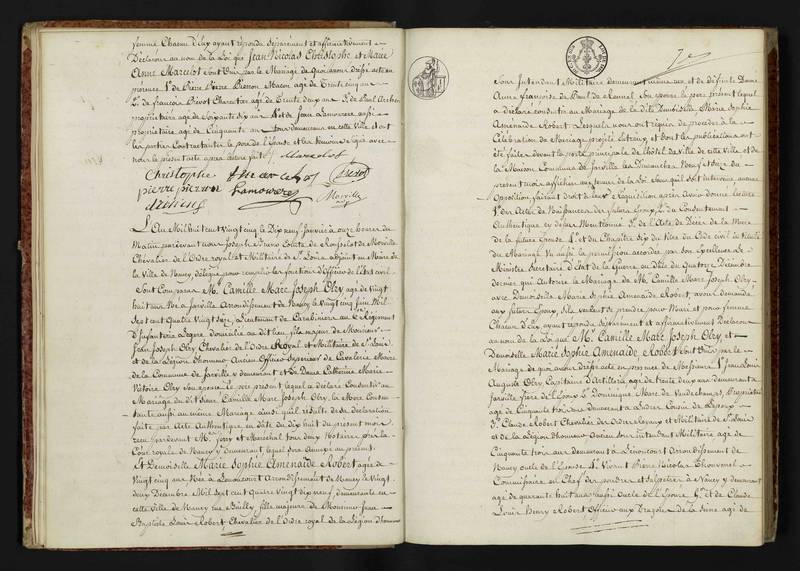 femme Chacun d'Eux ayant répondu séparément et affirmativement
Déclarons au nom de la Loi que Jean Nicolas Christophe et Marie
Anne Marcelot sont Unis par le Mariage de quoi avons dressé acte en
présence 1° de Pierre Pierron, Macon agé de Trente cinq ans
2° de françois Prevot Charcutier agé de Trente deux ans 3° de Paul
propriétaire agé de Soixante dix ans 4° et de Jean Lamoureux aussi
propriétaire agé de Cinquante ans tous demeurans en cette Ville et ont
les parties Contractantes le pere de l'Epouse et les témoins signé avec
nous le present acte apres lecture fait
Marcelot
Christophe Prevot
pierre pierron Lamoureux
Morville
L'An Mil huit cent Vingt cinq le Dix neuf Janvier à onze heures du
Matin pardevant nous Joseph de Morville
Chevalier de l'Ordre royal et Militaire de St. Louis adjoint au Maire de
la Ville de Nancy délégué pour remplir les fonctions d'Officier de l'Etat civil.
Sont Comparus Mr. Camille Marc Joseph Olry agé de Vingt
huit ans Né à Jarville Arrondissement de Nancy le Vingt cinq Mil
Sept cent quatre Vingt Seize, Lieutenant de Carabiniers au Régiment
d'Infanterie Légère domicilié au dit lieu, fils majeur de Monsieur
Jean Joseph Olry Chevalier de l'Ordre Royal et Militaire de St. Louis
et de la Légion d'honneur Ancien Officier Supérieur de Cavalerie Maire
de la Commune de Jarville y demeurant et de Dame Catherine Marie
Victoire Olry son épouse Le père présent lequel a déclaré Consentir au
Mariage du dit Sieur Camille Marc Joseph Olry, la Mere Consen-
tante aussi au même Mariage ainsi qu'il résulte de sa déclaration
faite par Acte Authentique en date du dix huit du present mois
reçu pardevant Mes. Jory et Marechal tous deux Notaires pour la
Cour royale de Nancy y demeurant lequel sera Annexé au présent.
Et Demoiselle Marie Sophie Amenaïde Robert agée de
Vingt cinq ans Née à Lenoncourt Arrondissement de Nancy le Vingt
deux Décembre Mil Sept cent quatre Vingt dix neuf demeurante en
cette Ville de Nancy rue Bailly fille majeure de Monsieur Jean
Baptiste Louis Robert Chevalier de l'Ordre royal de la Légion d'honneur
7e
Sous Intendant Militaire demeurant même rue et de défunte Dame
Anne françoise de Paul de Le pere présent lequel
a déclaré consentir au Mariage de la dite Demoiselle Marie Sophie
Aménaïde Robert Lesquels nous ont requis de procéder à la
Célébration du Mariage projeté Entr'eux, et dont les publications ont
été faites devant la porte principale de l'hôtel de Ville de cette Ville et de
la Maison Commune de Jarville les Dimanches Neuf et Seize du
présent mois affichées aux termes de la Loi sans qu'il soit intervenu aucune
Opposition, faisant droit à leur réquisition après avoir donné lecture
1° des Actes de Naissances des futurs Epoux, 2° du Consentement
Authentique ci dessus Mentionné 3° de l'Acte de Décès de la Mere
de la future Epouse 4° et du Chapitre Six du titre du Code civil intitulé
du Mariage Vu aussi la permission accordée par son Excellence Le
Ministre Secretaire d'Etat de la Guerre en date du Quatorze Décembre
dernier qui Autorise le Mariage de Mr. Camille Marc Joseph Olry
avec Demoiselle Marie Sophie Amenaïde Robert, avons demandé
aux futurs Epoux, s'ils veulent se prendre pour Mari et pour femme
Chacun d'Eux, ayant répondu séparément et affirmativement Déclarons
au nom de la Loi que Mr. Camille Marc Joseph Olry et
Demoiselle Marie Sophie Amenaïde Robert sont Unis par le
Mariage de quoi avons dressé acte en présence de Messieurs 1° Jean Louis
Auguste Olry, Capitaine d'Artillerie, agé de trente deux ans demeurant à
Jarville frère de l'Epoux 2° Dominique Marc de Vandechamps, Propriétaire
agé de Cinquante trois ans demeurant à Cousin de l'époux
3° Claude Robert Chevalier des Ordres Royaux et Militaire de St. Louis
et de la Légion d'honneur Ancien sous intendant Militaire agé de
Cinquante trois ans demeurant à Lenoncourt Arrondissement de
Nancy oncle de l'Epouse Pierre Nicolas Thouvenel
Commissaire en Chef des poudres et Salpêtres à Nancy y demeurant
agé de quarante huit ans aussi oncle de l'Epouse et de Claude
Louis Henry Robert Officier aux Dragons de la Seine agé de